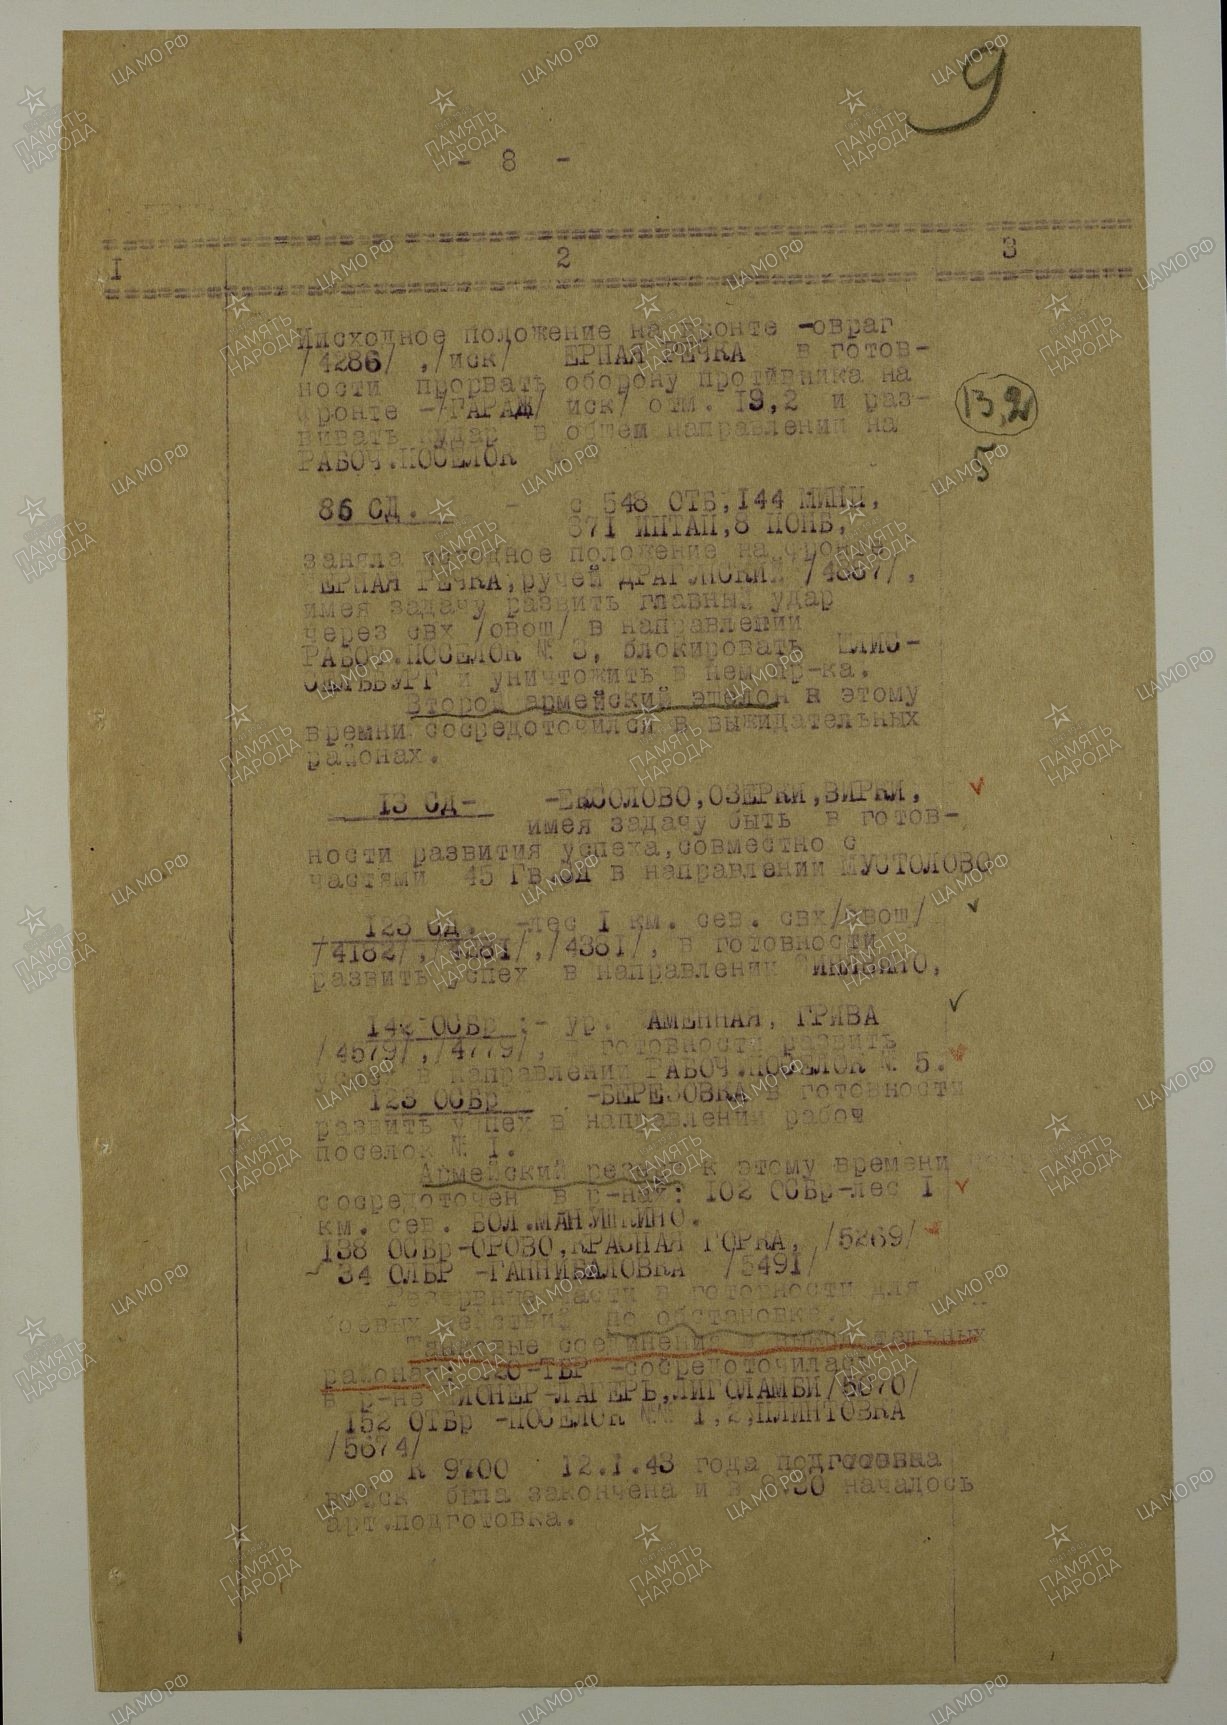 9
- 8 -
I 2 3
Иисходное положение на фронте -овраг
/4286/ ,/иск/ ЕРНАЯ РЕЧКА в готов-
ности прорвать оборону противника на
фронте -/ГАРАЖ/ иск/ отм. 19,2 и раз-
13,2
вивать удар в общем направлении на
РАБОЧ.ПОСЕЛОК №
5
86 СД. - с 548 ОТБ,144 МИНП,
671 ИПТАП,8 ПОНБ,
заняла исходное положение на фронте
ЕРНАЯ РЕЧКА,ручей ДРАГУНСКИЙ /4867/,
имея задачу развить главный удар
через свх /овощ/ в направлении
РАБОЧ.ПОСЕЛОК № 3, блокировать ШЛИС-
СЕЛЬБУРГ и уничтожить в нем пр-ка.
Второй армейский эшелон к этому
времни сосредоточился в выжидательных
районах.
13 СД- -ЕКСОЛОВО,ОЗЕРКИ,ВИРКИ,
имея задачу быть в готов-
ности развития успеха,совместно с
частями 45 Гв.сд в направлении МУСТОЛОВО
123 СД. -лес I км. сев. свх/овощ/
/4182/,/4281/,/4381/, в готовности
развить успех в направлении СИНЯВИНО,
142 ОСБр :- ур. АМЕННАЯ, ГРИВА
/4579/,/4779/, в готовности развить
успех в направлении РАБОЧ.ПОСЕЛОК № 5.
123 ОСБр -БЕРЕЗОВКА в готовности
развить успех в направлении рабоч
поселок № I.
Армейский резерв к этому времени
сосредоточен в р-нах: 102 ОСБр-лес I
км. сев. БОЛ.МАНУШКИНО.
138 ОСБр-ОРОВО,КРАСНАЯ ГОРКА, /5269/
34 ОЛБР -ГАННИБАЛОВКА /5491/
Резервные части в готовности для
боевых действий по обстановке.
Танковые соединения в выжидательных
районах: 220-ТБР -сосредоточилась
в р-не ПИОНЕР-ЛАГЕРЬ,ЛИГОЛАМБИ/5670/
152 ОТБр -ПОСЕЛОК №№ I,2,ПЛИНТОВКА
/5674/
К 9.00 12.I.43 года подготовка
войск была закончена и в 9.30 началось
арт.подготовка.